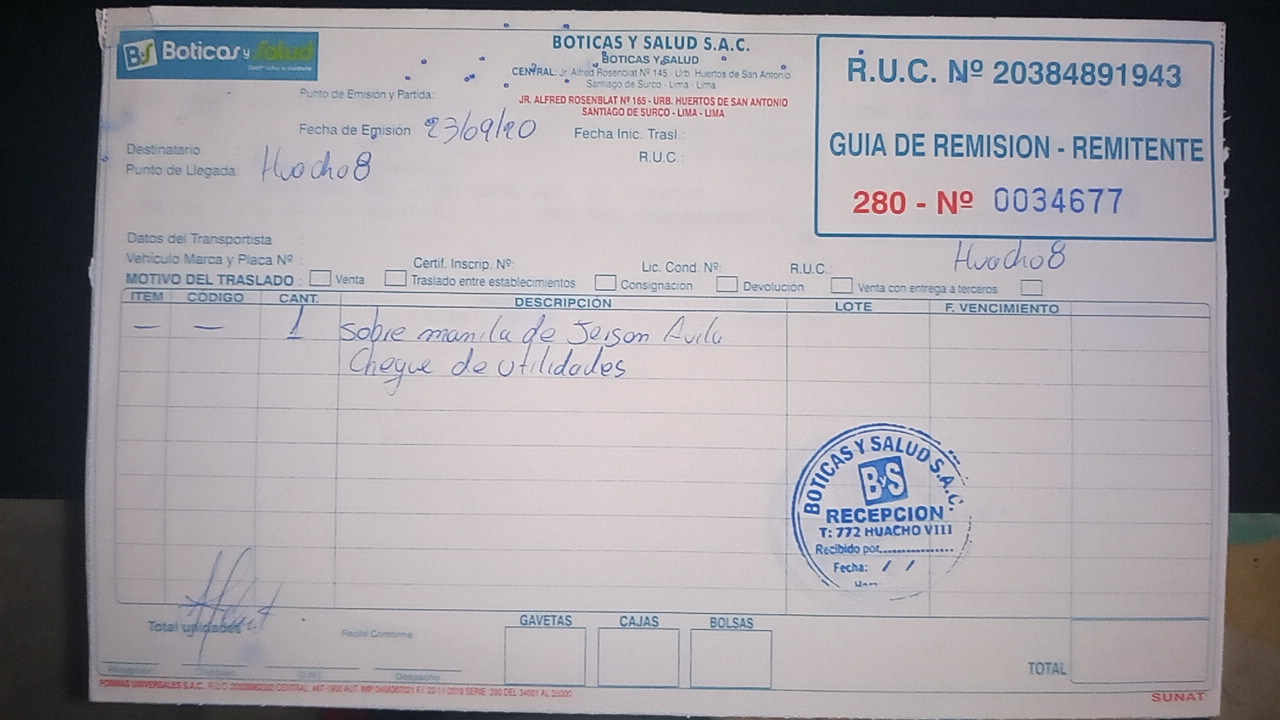 B&S Boticas y Salud
BOTICAS Y SALUD S.A.C.
BOTICAS Y SALUD
CENTRAL: Jr. Alfred Rosenblat Nº 145 - Urb. Huertos de San Antonio
Santiago de Surco - Lima - Lima
Punto de Emisión y Partida:
JR. ALFRED ROSENBLAT Nº 165 - URB. HUERTOS DE SAN ANTONIO
SANTIAGO DE SURCO - LIMA - LIMA
R.U.C. Nº 20384891943
GUIA DE REMISION - REMITENTE
280 - Nº 0034677
Fecha de Emisión 23/09/20 Fecha Inic. Trasl.:
Destinatario R.U.C.:
Punto de Llegada: Huacho 8
Datos del Transportista :
Vehículo Marca y Placa Nº : Certif. Inscrip. Nº: Lic. Cond. Nº: R.U.C.: Huacho 8
MOTIVO DEL TRASLADO : Venta Traslado entre establecimientos Consignación Devolución Venta con entrega a terceros
ITEM CÓDIGO CANT. DESCRIPCIÓN LOTE F. VENCIMIENTO
— — 1 Sobre manila de Jeison Avila
Cheque de utilidades
BOTICAS Y SALUD S.A.C.
B&S
RECEPCION
T: 772 HUACHO VIII
Recibido por..............
Fecha: / /
Total unidades Recibí Conforme GAVETAS CAJAS BOLSAS
TOTAL
Recepción Chequeo Despacho
FORMAS UNIVERSALES S.A.C. SERIE: 280 DEL 34001 AL 35000
SUNAT